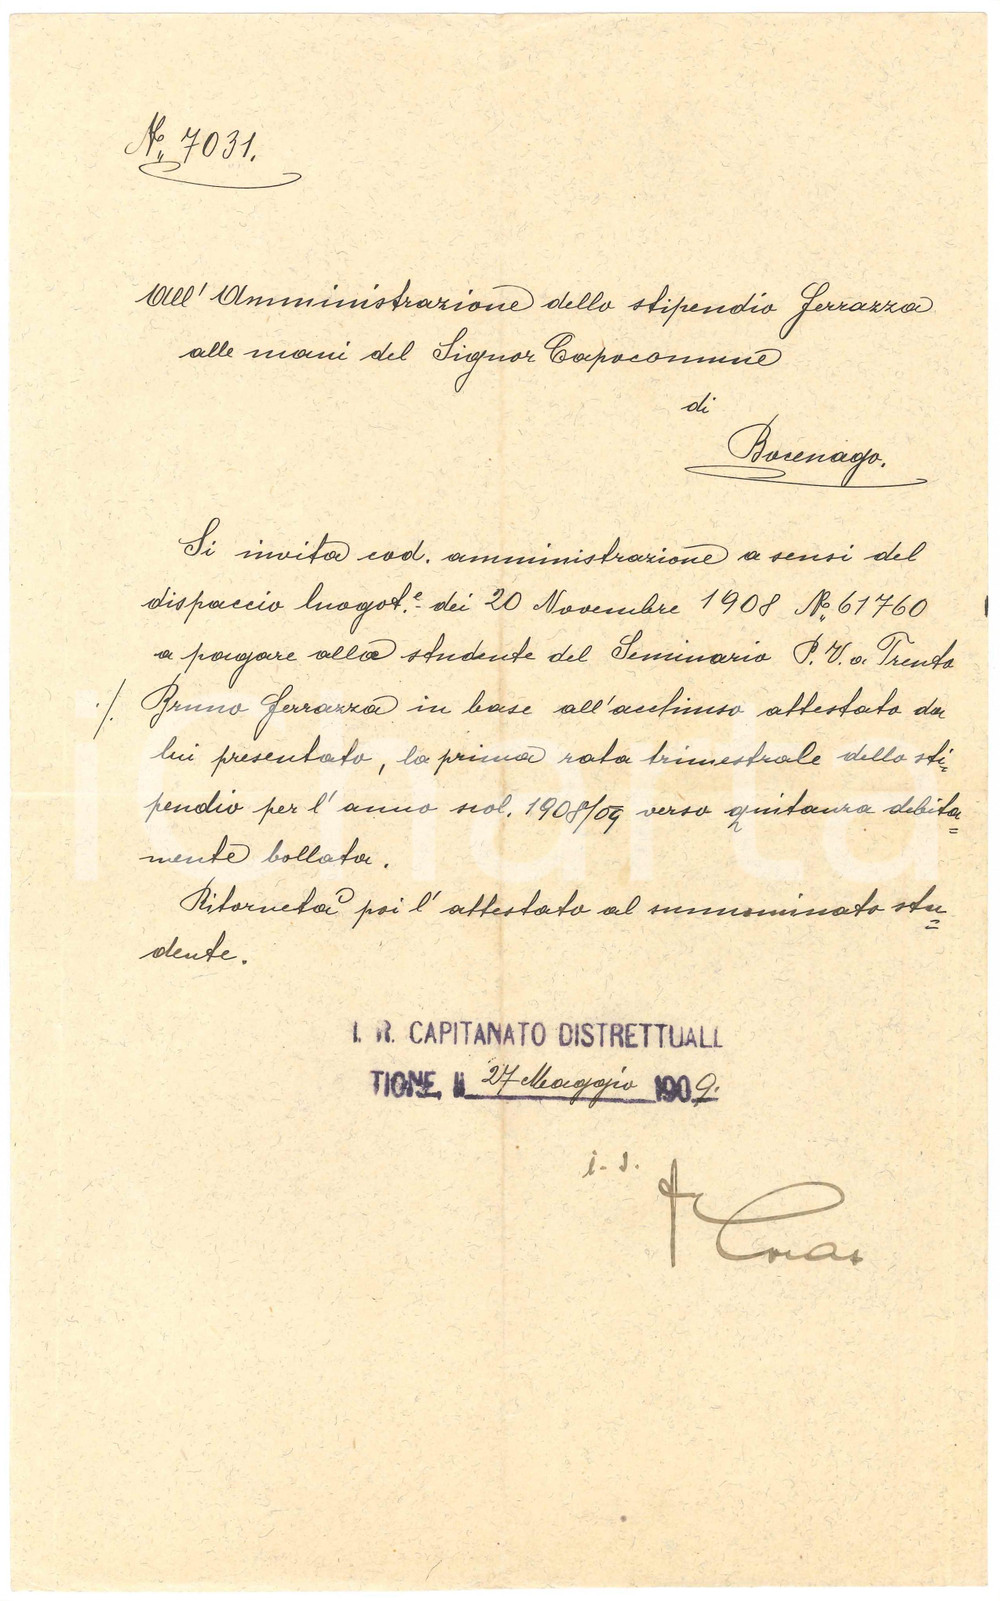 No. 7031.
All' Amministrazione dello stipendio Ferrazza
alle mani del Signor Capocomune
di
Bocenago.
Si invita cod. amministrazione a sensi del
dispaccio luogot.e dei 20 Novembre 1908 No. 61760
a pagare allo studente del Seminario P. V. a Trento
./. Bruno Ferrazza in base all'acchiuso attestato da
lui presentato, la prima rata trimestrale dello sti=
pendio per l'anno scol. 1908/09 verso quitanza debita=
mente bollata.
Ritornerà poi l'attestato al sunnominato stu=
dente.
I. R. CAPITANATO DISTRETTUALE
TIONE, li 27 Maggio 1909.